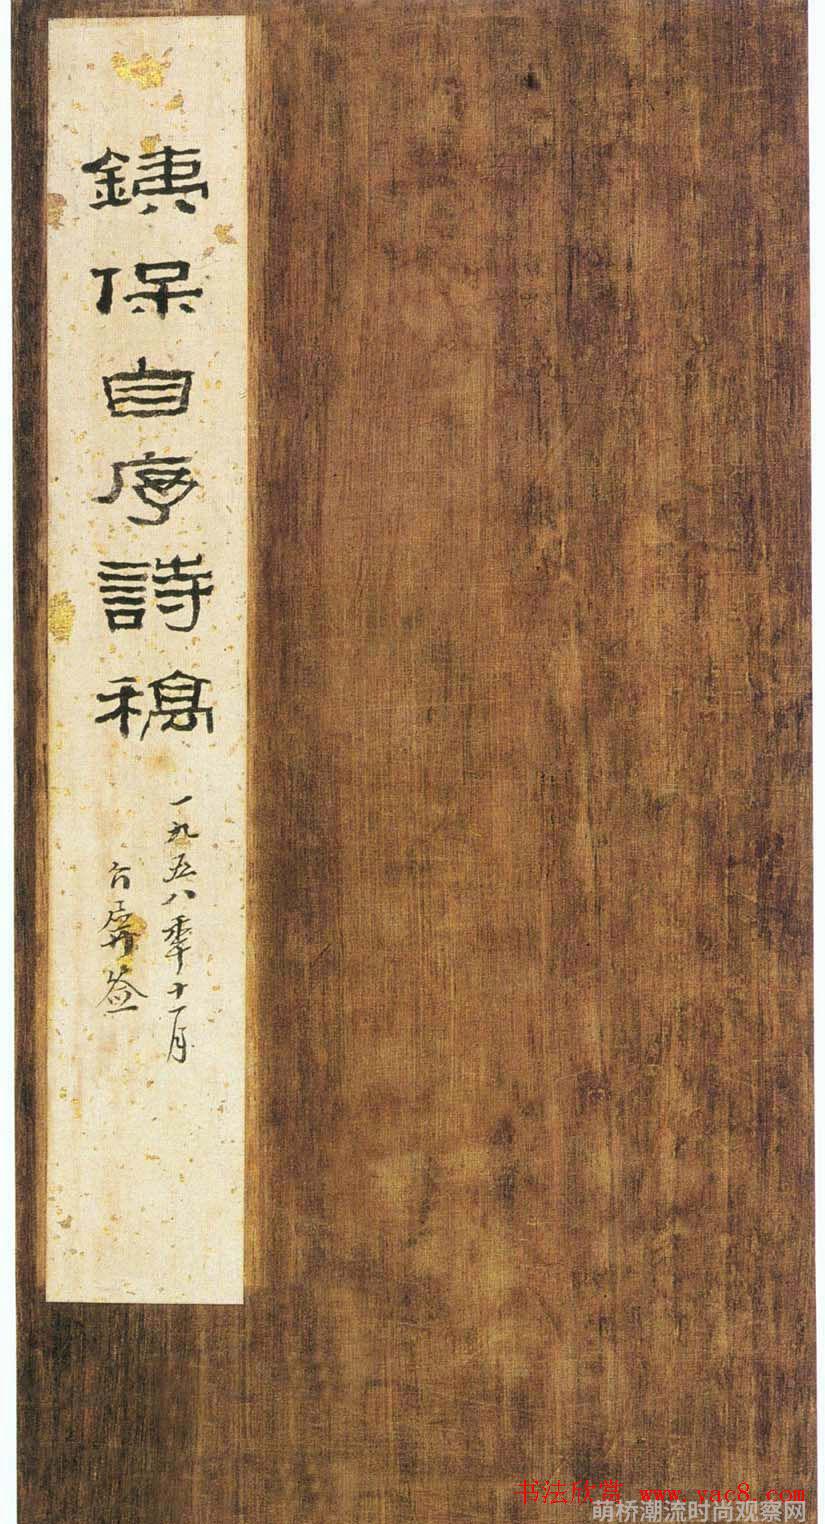 銕保自序詩稿
一九五八年十一月
签
书法欣赏 www.yac8.com
萌桥潮流时尚观察网